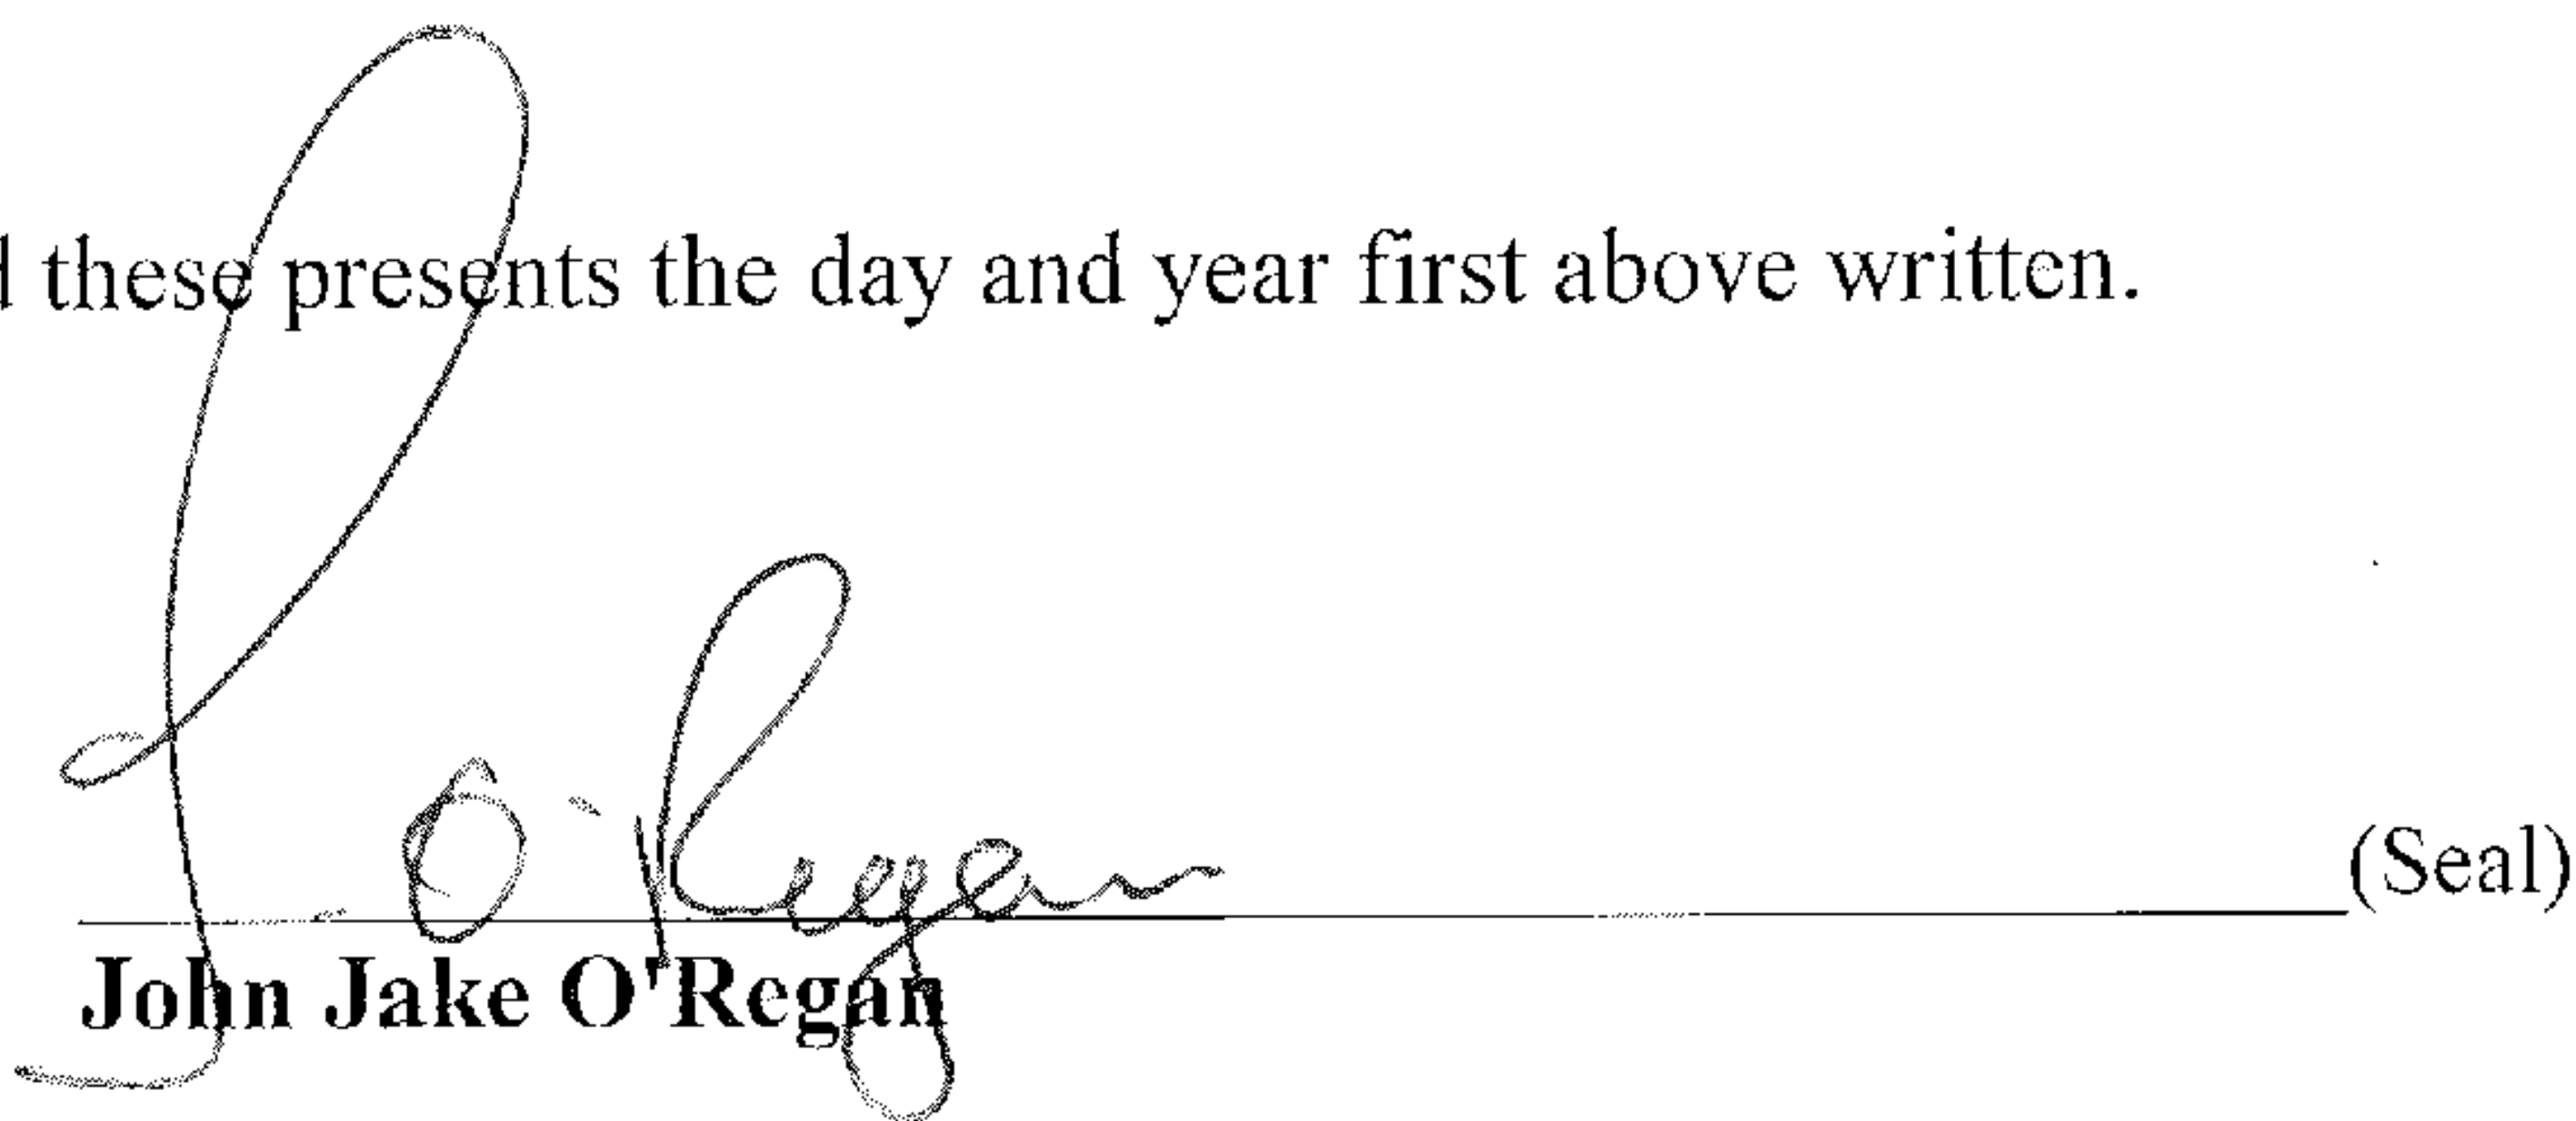 these presents the day and year first above written.
J O'Regan
(Seal)
John Jake O'Regan